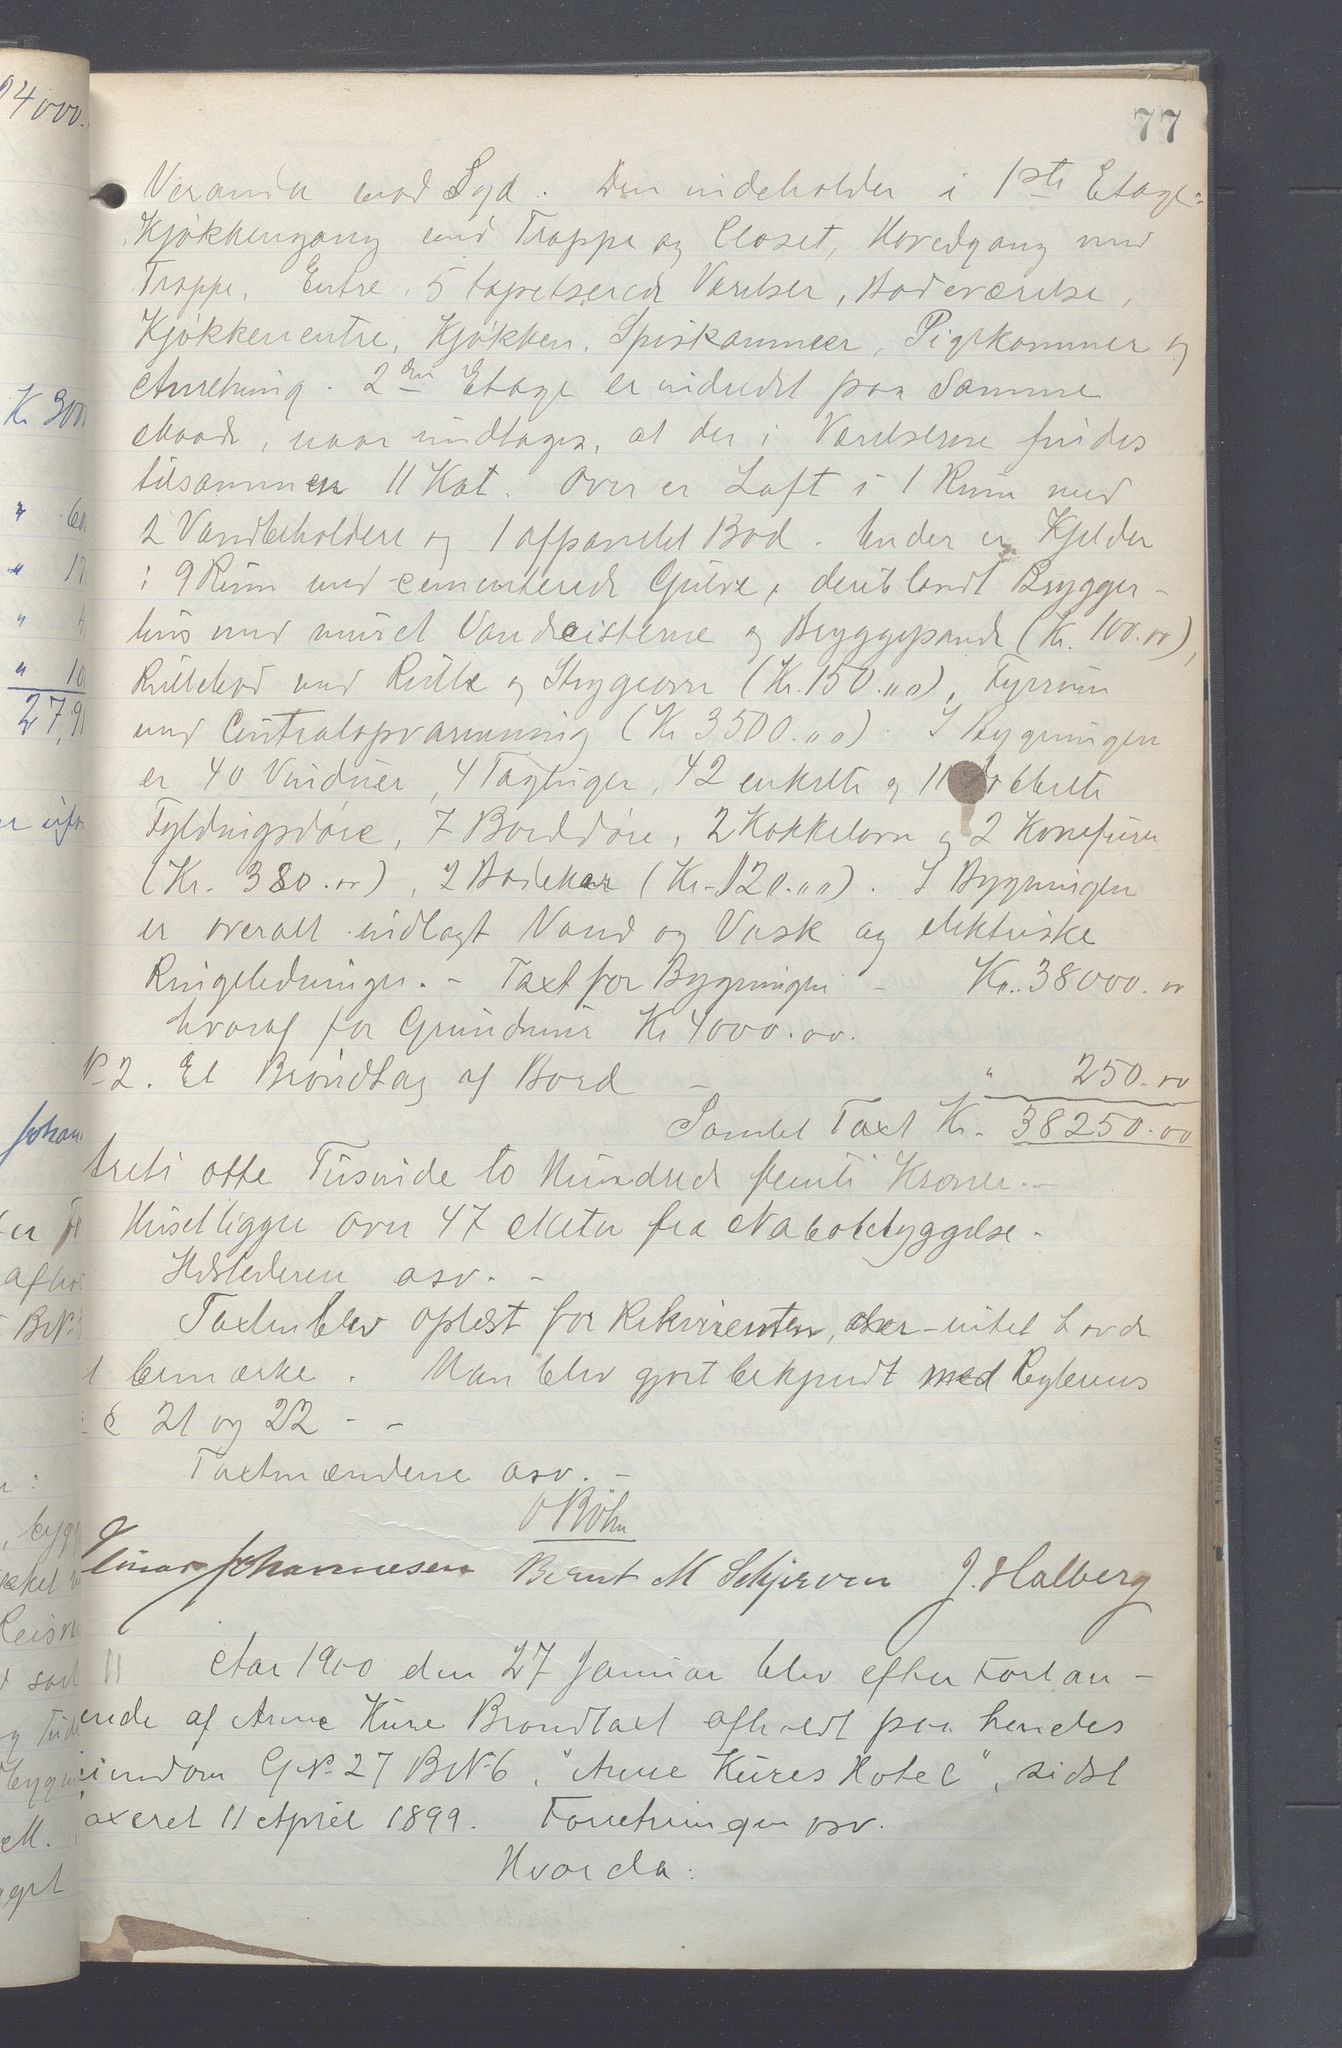 77
Veranda mod Syd. Den indeholder i 1ste Etage:
Kjøkkengang med Trappe og Closet, Hovedgang med
Trappe, Entre, 5 tapetserede Værelser, Badeværelse,
Kjøkkenentre, Kjøkken, Spiskammer, Pigekammer og
Anretning. 2den Etage er indredet paa samme
Maade, naar undtages, at der i Værelserne findes
tilsammen 11 Kot. Over er Loft i 1 Rum med
2 Vandbeholdere og 1 afpanelet Bod. Under er Kjelder
i 9 Rum med cementerede Gulve, deriblandt Brygger-
hus med muret Vandcisterne og Bryggepande (Kr. 100.00),
Rullebod med Rulle og Strygeovn (Kr. 150.00), Fyrrum
med Centralopvarmning (Kr 3500.00). I Bygningen
er 40 Vinduer, 4 Tagluger, 42 enkelte og 11 dobbelte
Fyldingsdøre, 7 Borddøre, 2 Kakkelovn og 2 Komfurer
(Kr. 380.00), 2 Badekar (Kr. 120.00). I Bygningen
er overalt indlagt Vand og Vask og elektriske
Ringeledninger. - Taxt for Bygningen - Kr. 38000.00
hvoraf for Grundmur Kr 4000.00.
No 2. Et Brøndtag af Bord - " 250.00
Samlet Taxt Kr. 38250.00
treti otte Tusinde to Hundrede femti Kroner. -
Huset ligger over 47 Meter fra Nabobebyggelse.
Ildstederne osv. -
Taxten blev oplæst for Rekvirenten, der intet havde
at bemærke. Han blev gjort bekjendt med Reglernes
21 og 22 - -
Taxtmændene osv. -
O Böhn
Einar Johannesen Bernt M Schjerven J. Halberg
11 Aar 1900 den 27 Januar blev efter Forlan-
gende af Anne Kure Brandtaxt afholdt paa hendes
Eiendom GNo 27 BNo 6, "Anne Kures Hotel", sidst
taxeret 11 April 1899. Forretningen osv.
Hvorda: